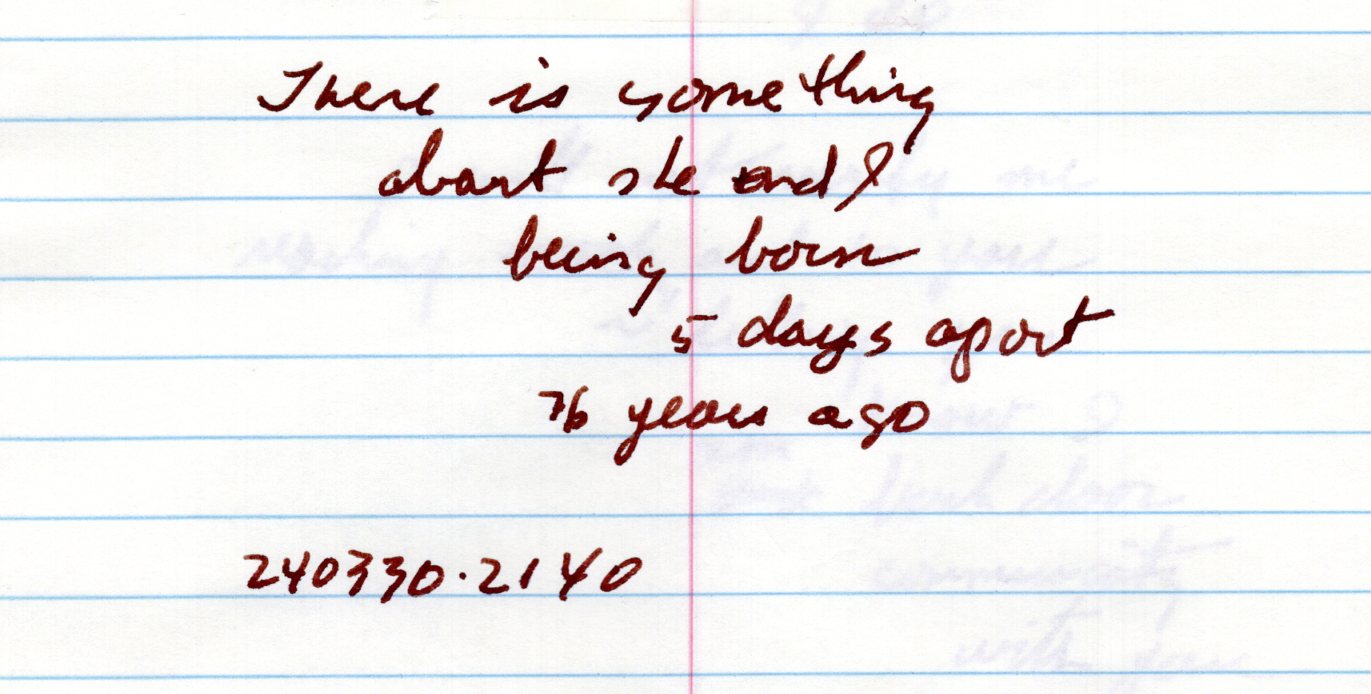 There is something
about she and I
being born
5 days apart
76 years ago
240330.2140